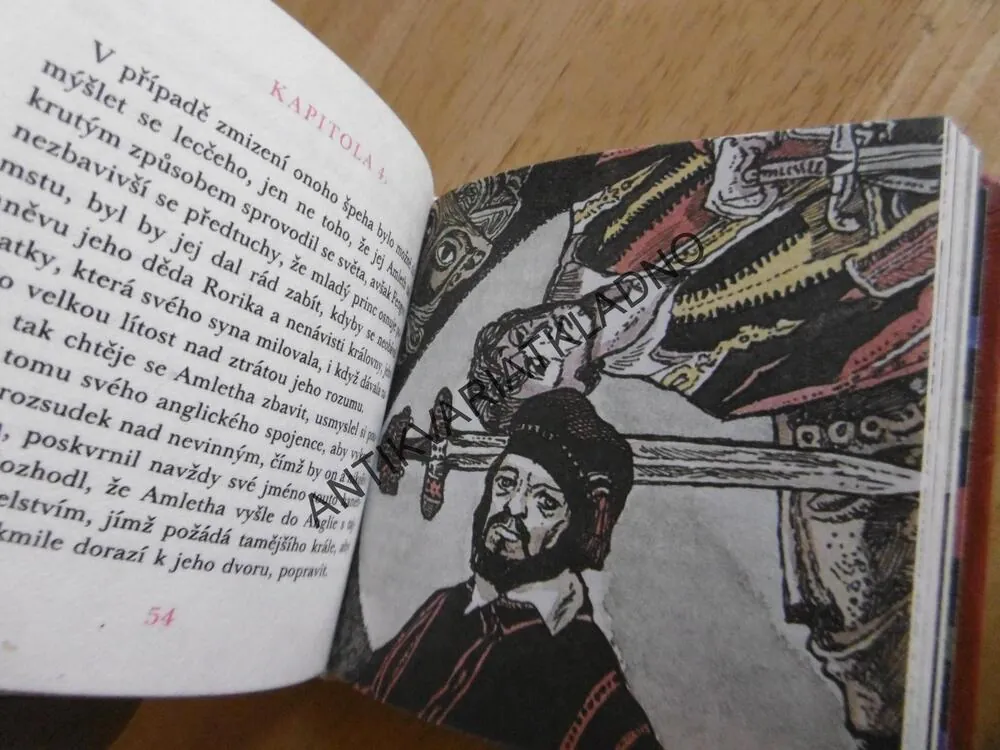 KAPITOLA 4.
V případě zmizení onoho špeha bylo možno
mýšlet se lecčeho, jen ne toho, že jej Amleth
krutým způsobem sprovodil se světa, avšak
nezbavivší se předtuchy, že mladý princ
mstu, byl by jej dal rád zabít, kdyby se
něvu jeho děda Rorika a nenávisti královny,
atky, která svého syna milovala, i když dávala
o velkou lítost nad ztrátou jeho rozumu.
tak chtěje se Amletha zbavit, usmyslel si
tomu svého anglického spojence, aby
rozsudek nad nevinným, čímž by on
poskvrnil navždy své jméno
ozhodl, že Amletha vyšle do Anglie s
elstvím, jímž požádá tamějšího krále,
kmile dorazí k jeho dvoru, popravit.
54
ANTIKVARIATKLADNO